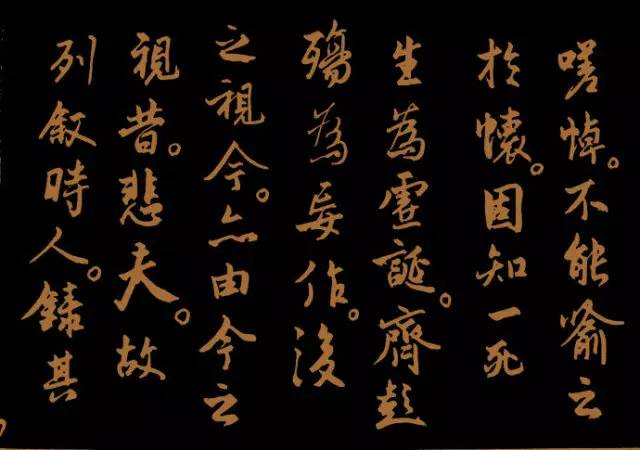 嗟悼。不能喻之
於懷。固知一死
生為虛誕。齊彭
殤為妄作。後
之視今。亦由今之
視昔。悲夫。故
列叙時人。錄其